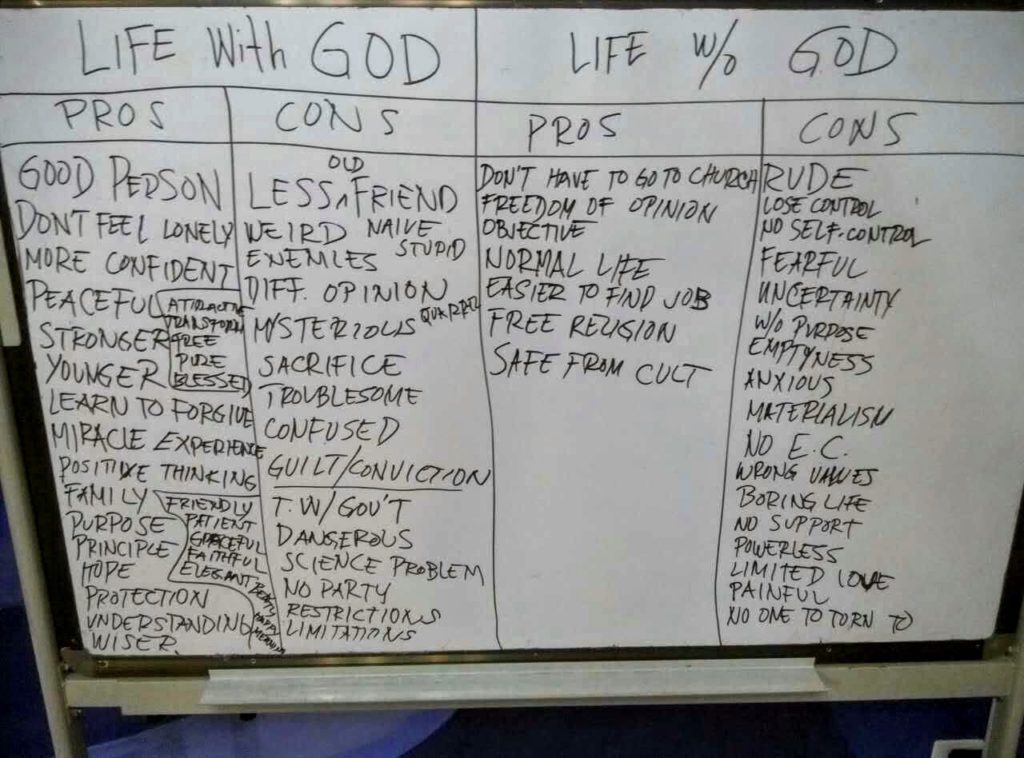 LIFE With GOD
PROS
GOOD PERSON
DON'T FEEL LONELY
MORE CONFIDENT
PEACEFUL
STRONGER
YOUNGER
ATTRACTIVE
TRANSFORM
FREE
PURE
BLESSED
LEARN TO FORGIVE
MIRACLE EXPERIENCE
POSITIVE THINKING
FAMILY
PURPOSE
PRINCIPLE
HOPE
FRIENDLY
PATIENT
GRACEFUL
FAITHFUL
ELEGANT
PROTECTION
UNDERSTANDING
WISER
CONS
OLD
LESS ^ FRIEND
WEIRD NAIVE
ENEMIES STUPID
DIFF. OPINION
QUARREL
MYSTERIOUS
SACRIFICE
TROUBLESOME
CONFUSED
GUILT/CONVICTION
T. W/ GOV'T
DANGEROUS
SCIENCE PROBLEM
NO PARTY
RESTRICTIONS
LIMITATIONS
LIFE w/o GOD
PROS
DON'T HAVE TO GO TO CHURCH
FREEDOM OF OPINION
OBJECTIVE
NORMAL LIFE
EASIER TO FIND JOB
FREE RELIGION
SAFE FROM CULT
CONS
RUDE
LOSE CONTROL
NO SELF-CONTROL
FEARFUL
UNCERTAINTY
W/O PURPOSE
EMPTYNESS
ANXIOUS
MATERIALISM
NO E.C.
WRONG VALUES
BORING LIFE
NO SUPPORT
POWERLESS
LIMITED LOVE
PAINFUL
NO ONE TO TORN TO